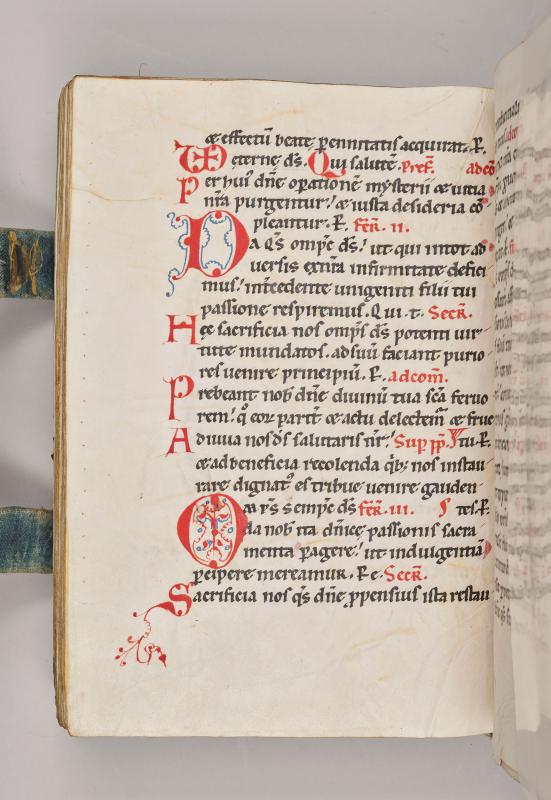 æ effectū beatę ꝑennitatis acquirat. P.
TE ęterne d̄s. Qui salutē. Pref. ad cō
Per huiꝰ dn̄e oꝑationē mysterii & uitia
nr̄a purgentur: & iusta desideria cō
pleantur. P. Fer̄. II.
Da q̄s omp̄c d̄s: ut qui in tot ad
uersis ex nr̄a infirmitate defici
mus: intercedente unigeniti filii tui
passione respiremus. Qui t. Secr̄.
Hęc sacrificia nos omp̄s d̄s potenti uir
tute mundatos. ad suū faciant purio
res uenire principiū. P. ad com̄.
Prebeant nob̄ dn̄e diuinū tua sc̄a feruo
rem: q̊ eoꝝ parit̄ & actu delectem̄ & fruc
Adiuua nos d̄s salutaris nr̄: Sup̄ pp̄. tu. P.
& ad beneficia recolenda qb; nos instau
rare dignatꝰ es tribue uenire gauden
Om̄ps sempr̄e d̄s Fer̄. III. tes. P.
da nob̄ ita dn̄icę passionis sacra
menta ꝑagere: ut indulgentiā
ꝑcipere mereamur. P e. Secr̄.
Sacrificia nos q̄s dn̄e ꝓpensius ista restau